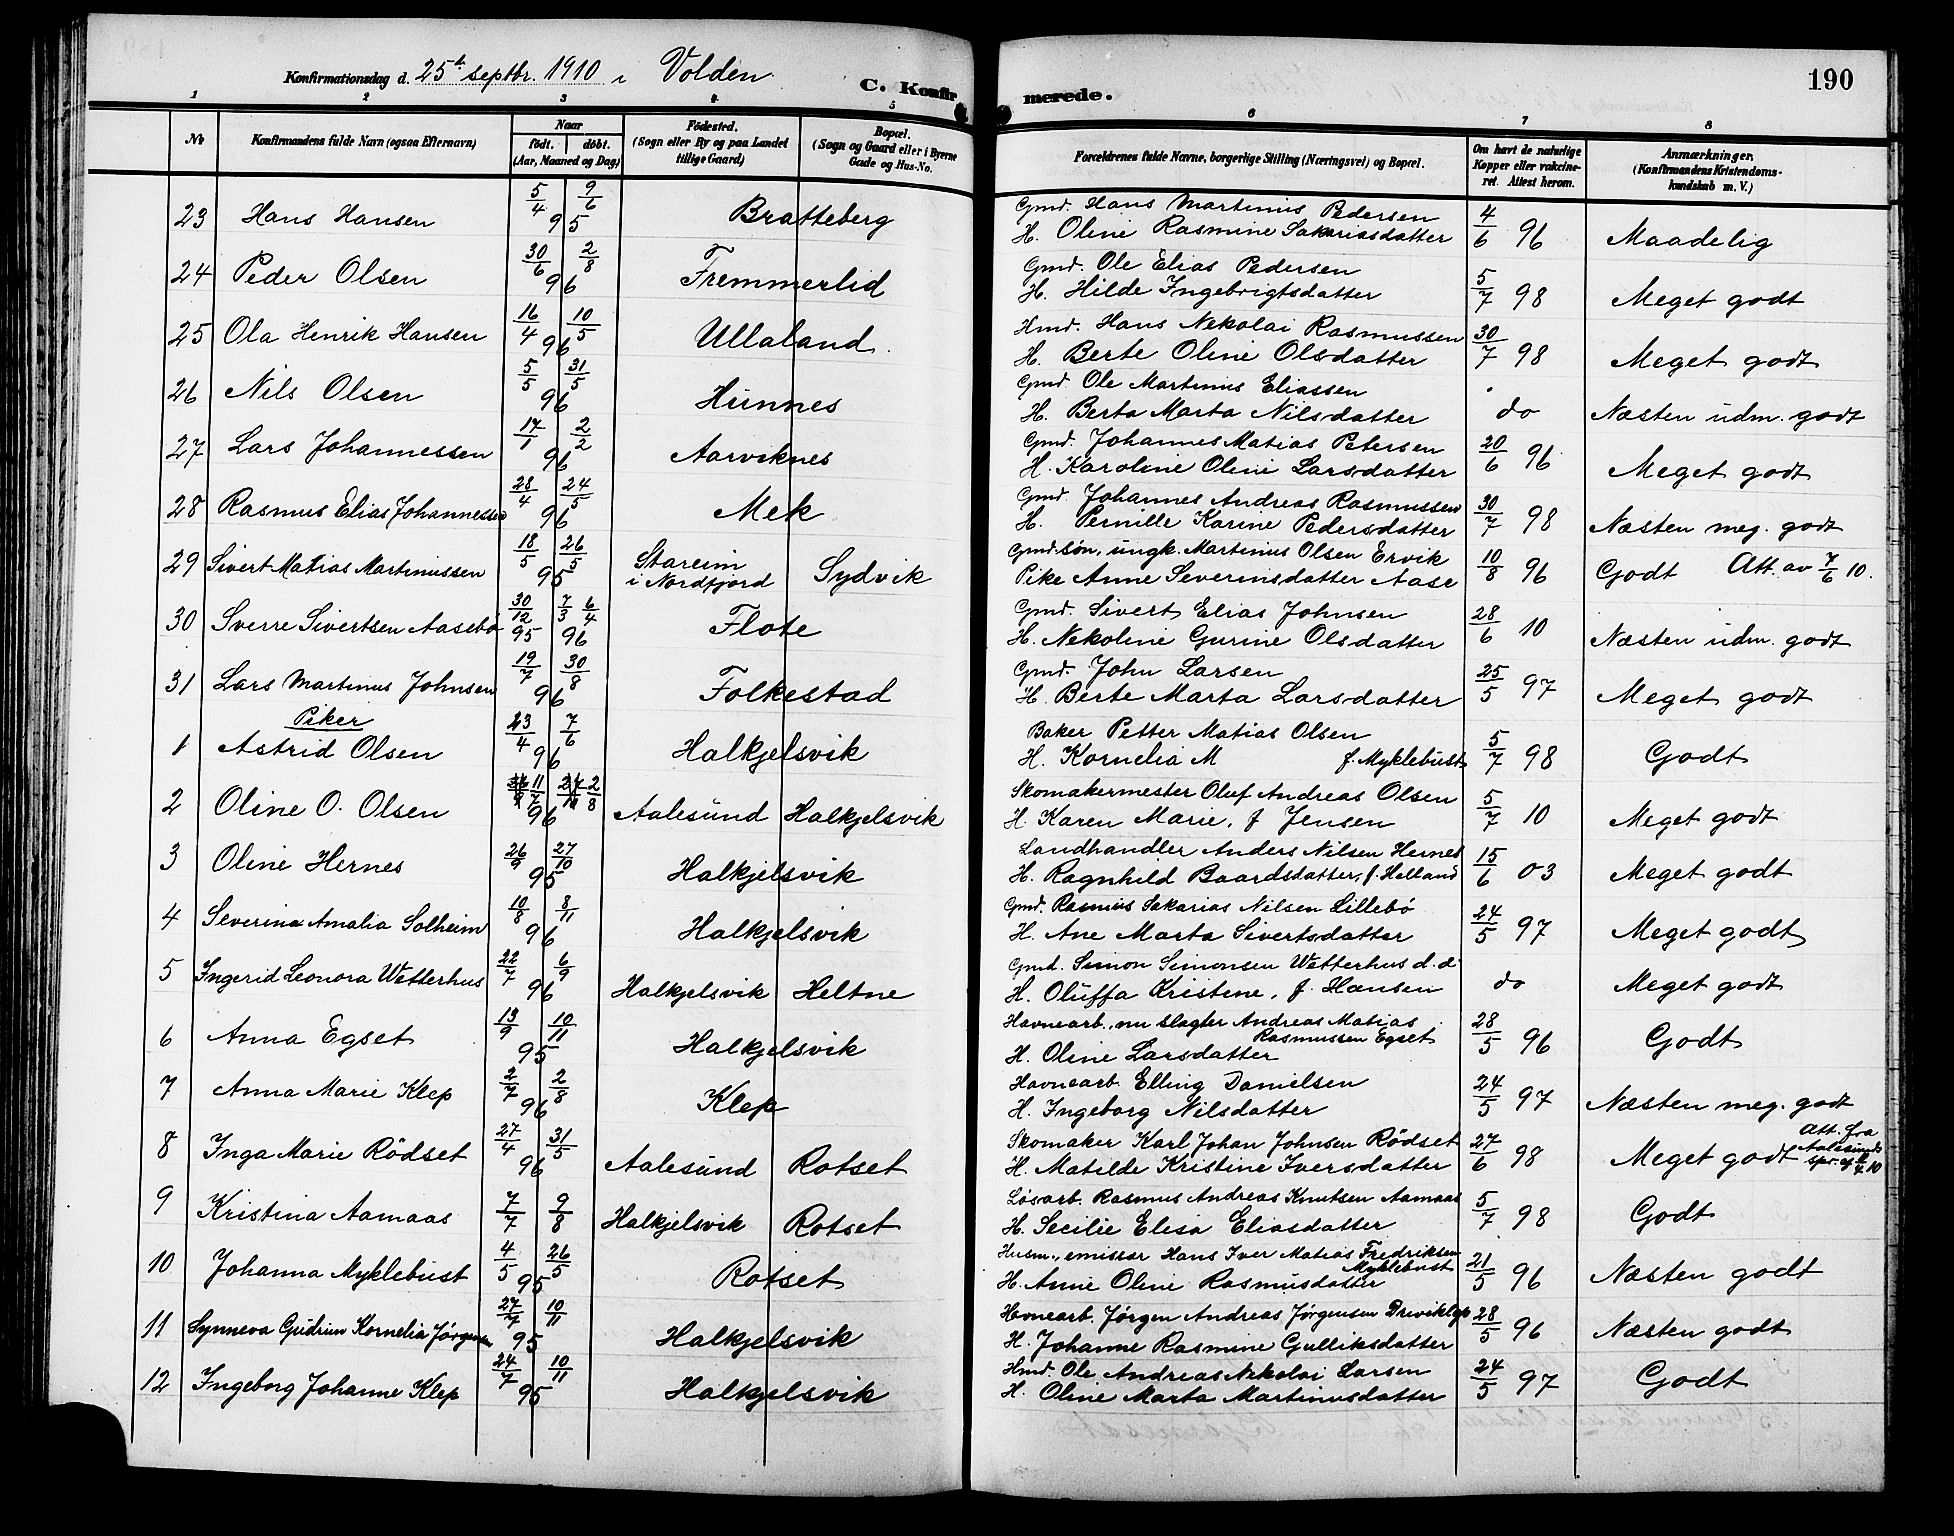 Konfirmationsdag d. 25de septbr. 1910 i Volden
C. Konfir merede.
190
1 2 3 4 5 6 7 8
No Konfirmandens fulde Navn (ogsaa Efternavn) Naar født. døbt. (Aar, Maaned og Dag) Fødested. (Sogn eller By og paa Landet tillige Gaard) Bopæl. (Sogn og Gaard eller i Byerne Gade og Hus-No. Forældrenes fulde Navne, borgerlige Stilling (Næringsvei) og Bopæl. Om havt de naturlige Kopper eller vakcineret. Attest herom. Anmærkninger. (Konfirmandens Kristendomskundskab m. V.)
23 Hans Hansen 5/4 9/6 95 Bratteberg Gmd. Hans Martinus Pedersen
H. Oline Rasmine Sakariasdatter 4/6 96 Maadelig
24 Peder Olsen 30/6 2/8 96 Fremmerlid Gmd. Ole Elias Pedersen
H. Hilde Ingebrigtsdatter 5/7 98 Meget godt
25 Ola Henrik Hansen 16/4 10/5 96 Ullaland. Hmd. Hans Nekolai Rasmussen
H. Berte Oline Olsdatter 30/7 98 Meget godt
26 Nils Olsen 5/5 31/5 96 Hunnes Gmd. Ole Martinus Eliassen
H. Berta Marta Nilsdatter do Næsten udm. godt
27 Lars Johannessen 17/1 2/2 96 Aarviknes Gmd. Johannes Matias Petersen
H. Karoline Oline Larsdatter 20/6 96 Meget godt
28 Rasmus Elias Johannessen 28/4 24/5 96 Mek Gmd. Johannes Andreas Rasmussen
H. Pernille Karine Pedersdatter 30/7 98 Næsten meg. godt
29 Sivert Matias Martinussen 18/5 26/5 95 Stareim i Nordfjord Sydvik Gmd.søn, ungk. Martinus Olsen Ervik
Pike Anne Severinsdatter Aase 10/8 96 Godt Att. av 7/6 10.
30 Sverre Sivertsen Aasebø 30/12 95 7/3 6/4 96 Flote Gmd. Sivert Elias Johnsen
H. Nekoline Gurine Olsdatter 28/6 10 Næsten udm. godt
31 Lars Martinus Johnsen 19/7 30/8 96 Folkestad Gmd. John Larsen
H. Berte Marta Larsdatter 25/5 97 Meget godt
Piker
1 Astrid Olsen 23/4 7/6 96 Halkjelsvik Baker Petter Matias Olsen
H. Kornelia M f. Myklebust 5/7 98 Godt
2 Oline O. Olsen 11/7 2/8 96 Aalesund Halkjelsvik Skomakermester Oluf Andreas Olsen
H. Karen Marie, f Jensen 5/7 10 Meget godt
3 Oline Hernes 26/9 27/10 95 Halkjelsvik Landhandler Anders Nilsen Hernes
H. Ragnhild Baardsdatter, f. Helland 15/6 03 Meget godt
4 Severina Amalia Solheim 10/8 8/11 96 Halkjelsvik Gmd. Rasmus Sakarias Nilsen Lillebø
H. Ane Marta Sivertsdatter 24/5 97 Meget godt
5 Ingerid Leonora Wetterhus 22/7 6/9 96 Halkjelsvik Heltne Gmd. Simon Simonsen Wetterhus d. d.
H. Oluffa Kristine, f. Hansen do Meget godt
6 Anna Egset 13/9 10/11 95 Halkjelsvik Havnearb., nu slagter Andreas Matias
Rasmussen Egset
H. Oline Larsdatter 28/5 96 Godt
7 Anna Marie Klep 2/7 2/8 96 Klep Havnearb. Elling Danielsen
H. Ingeborg Nilsdatter 24/5 97 Næsten meg. godt
8 Inga Marie Rødset 27/4 31/5 96 Aalesund Rotset Skomaker Karl Johan Johnsen Rødset
H. Matilde Kristine Iversdatter 27/6 98 Meget godt Att. fra Aalesunds
9 Kristina Aamaas 7/7 9/8 Halkjelsvik Rotset Løsarb. Rasmus Andreas Knutsen Aamaas
H. Secilie Elisa Eliasdatter 5/7 98 Godt
10 Johanna Myklebust 4/5 26/5 95 Rotset Husm., emissær Hans Iver Matias Fredriksen
Myklebust
H. Anne Oline Rasmusdatter 21/5 96 Næsten godt
11 Synneva Gudrun Kornelia Jørgensen 27/7 10/11 95 Halkjelsvik Havnearb. Jørgen Andreas Jørgensen Driviklep
H. Johanne Rasmine Gulliksdatter 28/5 96 Næsten godt
12 Ingeborg Johanne Klep 24/7 10/11 95 Halkjelsvik Hmd. Ole Andreas Nekolai Larsen
H. Oline Marta Martinusdatter 24/5 97 Godt